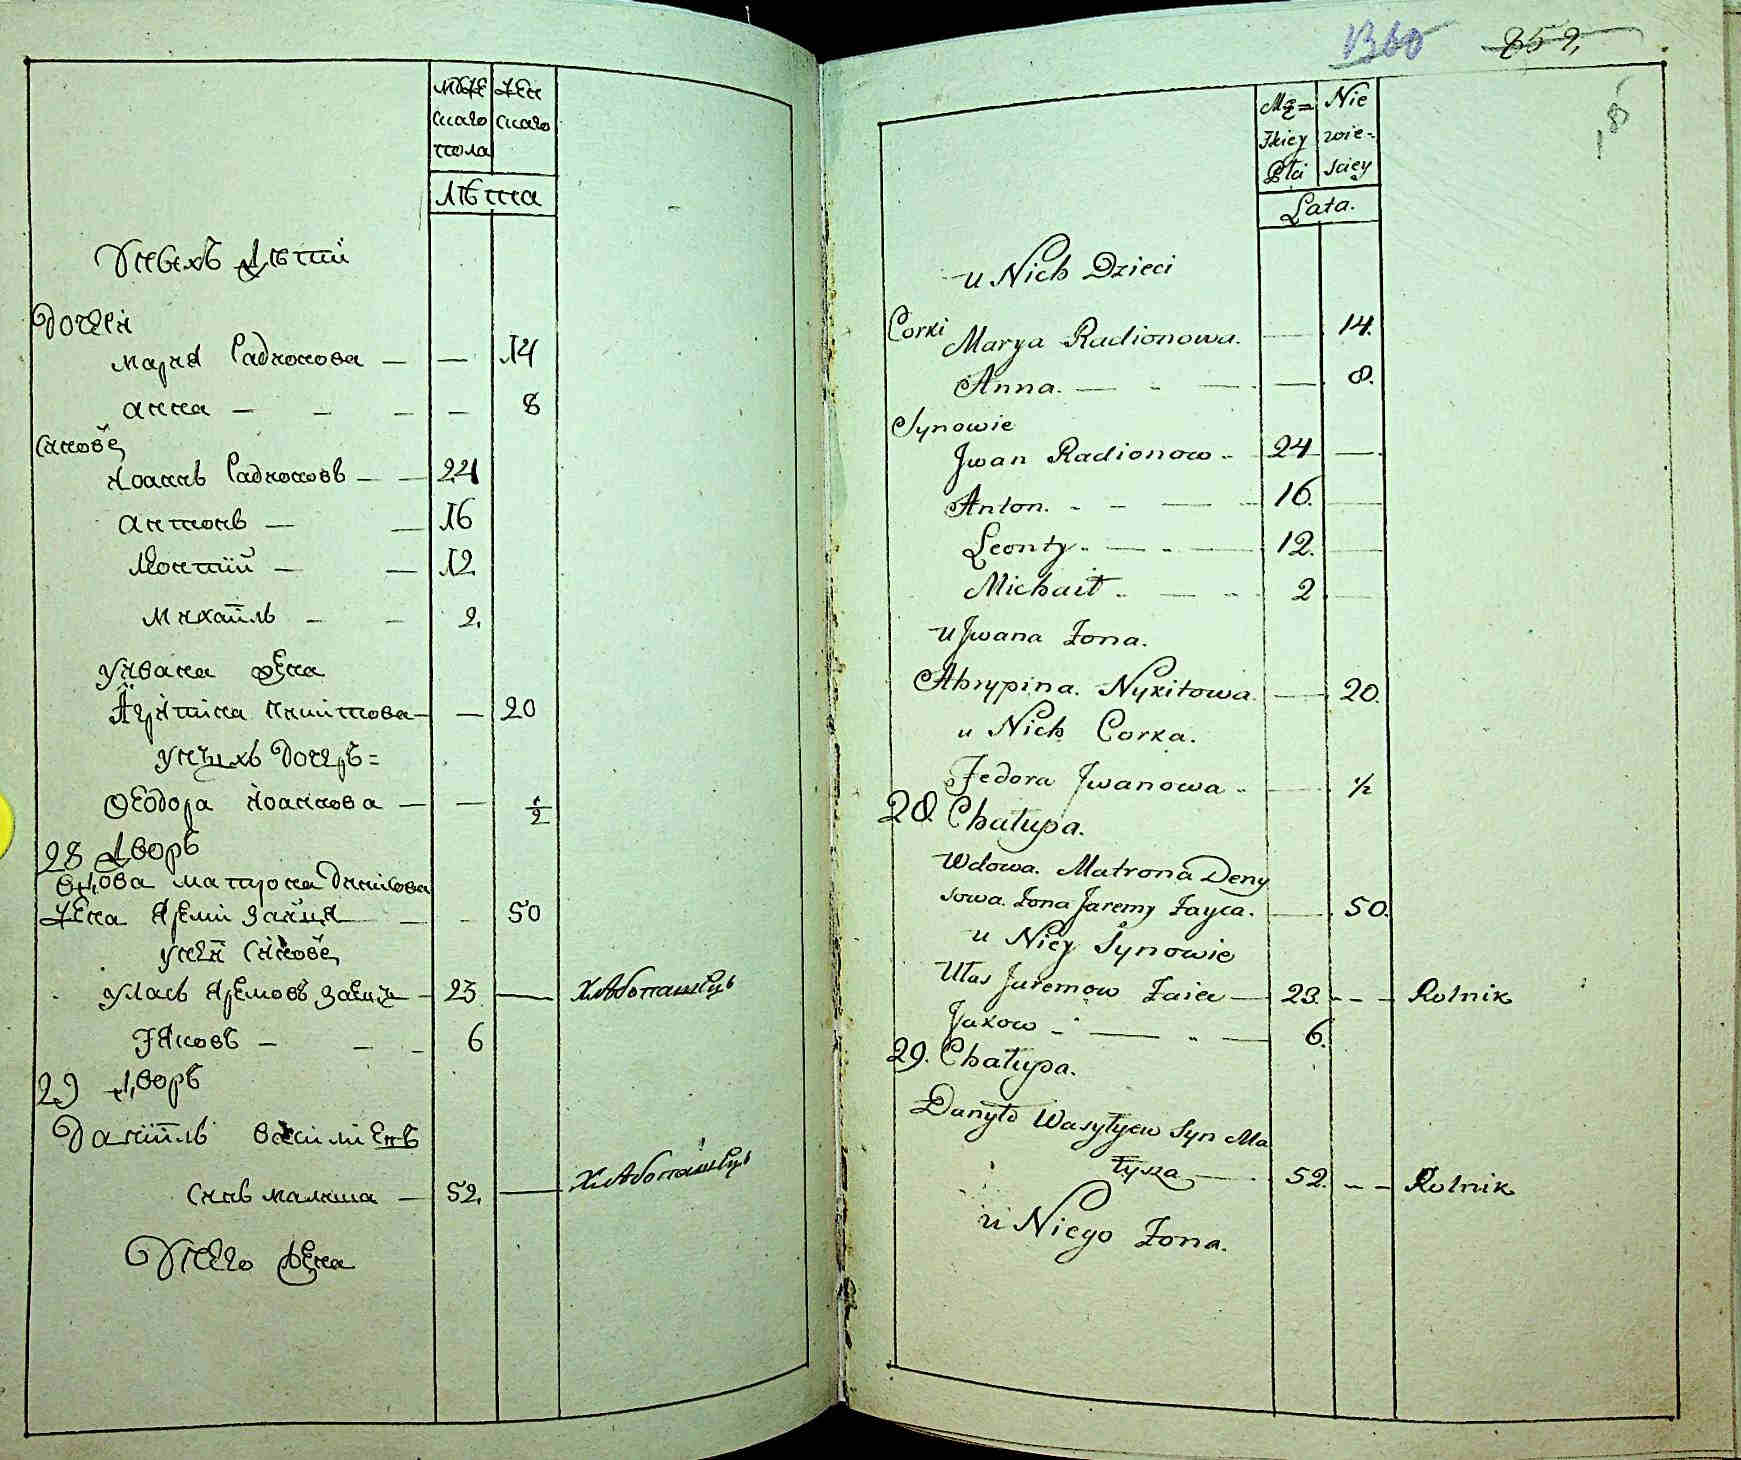 Мȣже Жен
скаго скаго
пола
Лѣта
У нихъ дѣти
Дочери
Мария Радионова — — 14
Анна — — — — 8
Синовѐ
Иоаннъ Радионовъ — — 24
Антонъ — — 16
Леонтий — — 12
Михаилъ — — 2.
У Ивана жена
Агрипина Никитова — — 20
У нихъ дочеръ =
Феодора Иоаннова — — 1/2
28 Дворъ
Вдова Матрона Данисова
Жена Яреми Зайця — - 50
У ней Синовѐ
Уласъ Яремовъ Заець — 23 — Хлѣбопашецъ
Яковъ — — - 6
29 Дворъ
Даниилъ Василиевъ
Синъ Малиша — 52. — Хлѣбопашецъ
У него жена
1360 859,
Mę= Nie
zkiey wie-
Płci sciey
Lata.
u Nich Dzieci
Corki
Marya Radionowa. — 14.
Anna. — - — — 8.
Synowie
Jwan Radionow - 24 —
Anton. - - — - 16. —
Leonty - — - — 12. —
Michaił - — - 2 —
u Jwana Zona.
Ahrypina. Nykitowa. — 20.
u Nich Corka.
Fedora Jwanowa - — 1/2
28 Chałupa.
Wdowa. Matrona Deny
sowa. Zona Jaremy Zayca. — 50.
u Niey Synowie
Ułas Juremow Zaiec — 23. - - — Rolnik
Jakow - — " - — 6.
29. Chałupa.
Danyło Wasylyew Syn Ma
łysza — 52. - — Rolnik
u Niego Zona.